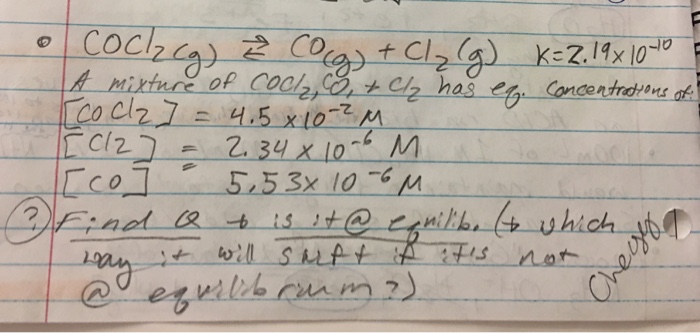 COCl2(g) ⇌ CO(g) + Cl2(g) K=2.19x10-10
A mixture of COCl2, CO, + Cl2 has eq. concentrations of:
[COCl2] = 4.5 x10-2 M
[Cl2] = 2.34 x 10-6 M
[CO] = 5.53x 10-6 M
? Find Q + is it @ equilib. (+ which
way it will shift if it is not
@ equilibrium?)